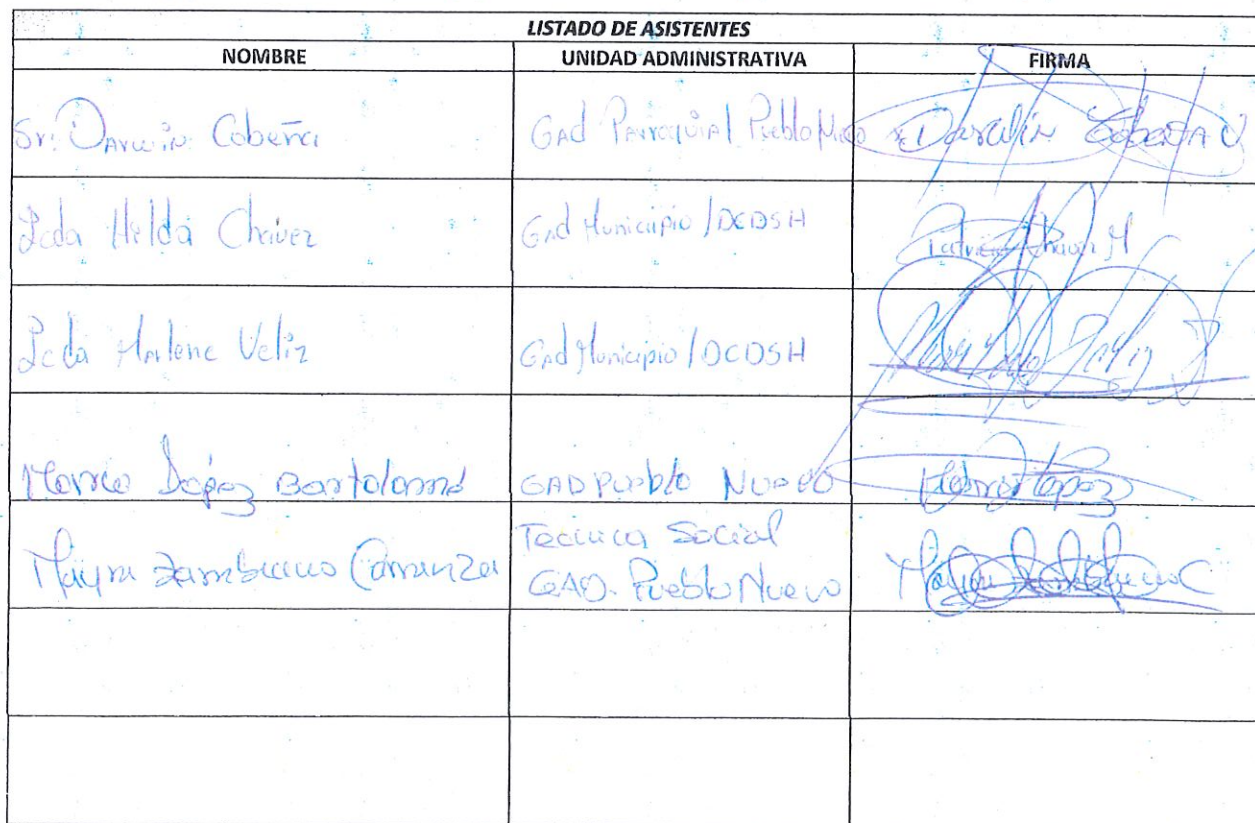 LISTADO DE ASISTENTES
NOMBRE UNIDAD ADMINISTRATIVA FIRMA
Sr. Darwin Cobeña GAD Parroquial Pueblo Nuevo Darwin Cobeña V
Lcda Hilda Chávez GAD Municipio / DCDSH Chavez M
Lcda Marlene Veliz GAD Municipio / DCDSH
López GAD Pueblo Nuevo López
Mayra Zambrano Carranza Tecnica Social
GAD. Pueblo Nuevo